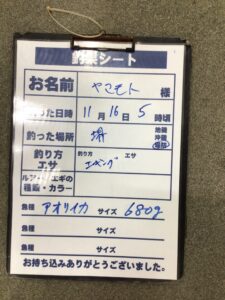 釣果シート
お名前 ヤマモト 様
釣った日時 11月16日5時頃
釣った場所 堺 地磯 沖磯 堤防
釣り方 エサ 釣り方 エギング エサ
ルアー/エギの種類・カラー
魚種 アオリイカ サイズ 680g
魚種 サイズ
魚種 サイズ
お持ち込みありがとうございました。